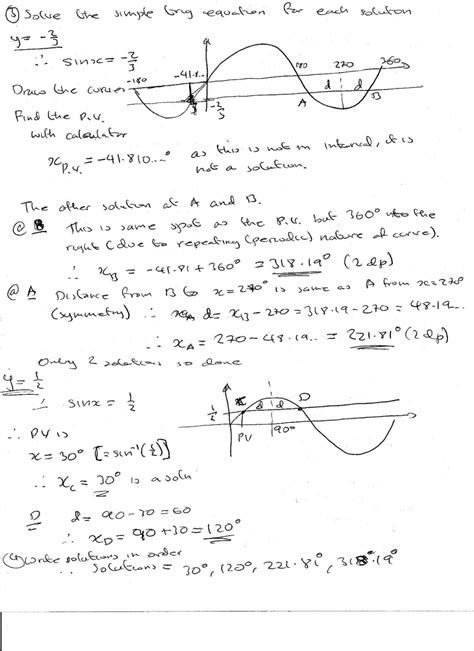 ③ Solve the simple trig equation for each solution
y = -2/3
∴ sinx = -2/3
-180 -41.1.. 180 270 360
d d
A B
-2/3
Draw the curve
Find the P.V.
with calculator
x P.V. = -41.810...° as this is not in interval, it is
not a solution.
The other solution at A and B.
@ B This is same spot as the P.V. but 360° to the
right (due to repeating (periodic) nature of curve).
∴ xB = -41.81 + 360° = 318.19° (2dp)
@ A Distance from B to x=270° is same as A from x=270
(symmetry) ∴ d = xB - 270 = 318.19 - 270 = 48.19...
∴ xA = 270 - 48.19.. = 221.81° (2dp)
Only 2 solutions so done
y = 1/2
∴ sinx = 1/2
1/2 d d D
PV 90°
∴ PV is
x = 30° [= sin⁻¹(1/2)]
∴ xC = 30° is a soln
D d = 90 - 30 = 60
∴ xD = 90 + 30 = 120°
(4) Write solutions in order
∴ Solutions = 30°, 120°, 221.81°, 318.19°